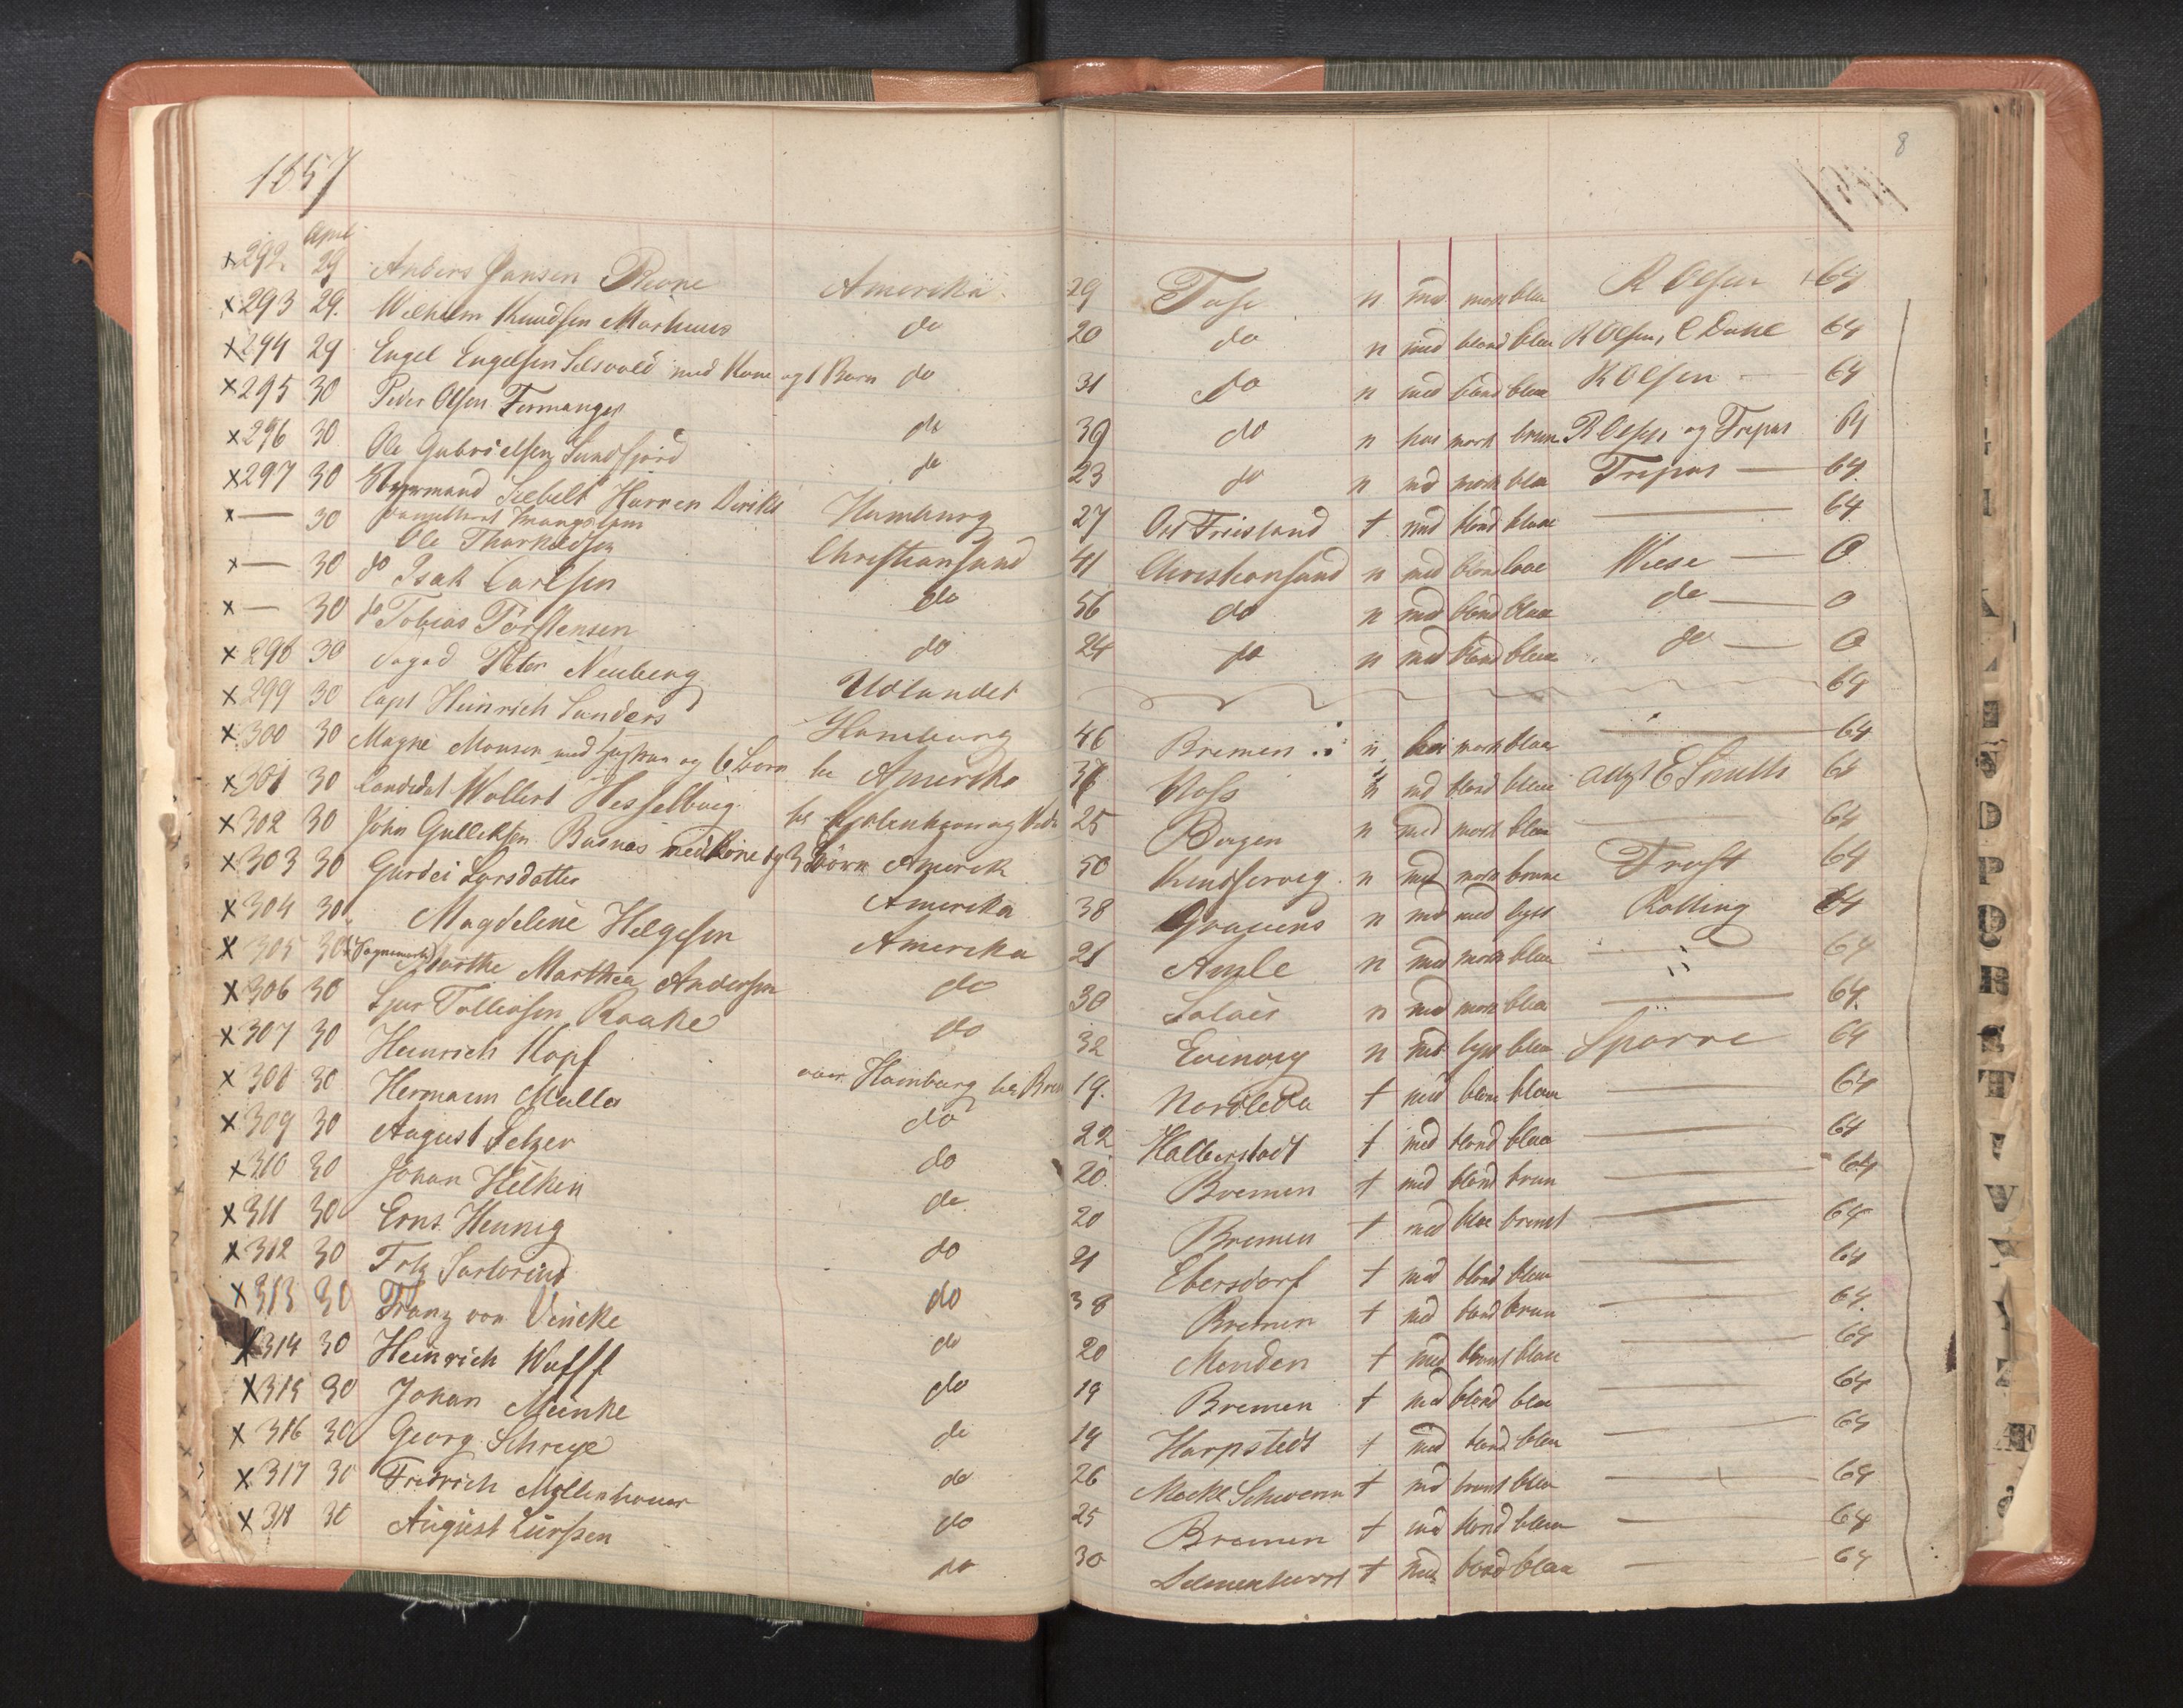 1857
8
April
x292. 29 Anders Jansen Reone Amerika 29 Tuse n med mork blaa R Olsen 64
x293 29. Wilhelm Knudsen Markuus do 20 do n med blond blaa R Olsen, C Dahl 64
x294 29 Engel Engelsen Selsvold med Kone og 1 Barn do 31 do n med blond blaa R Olsen 64
x295 30 Peder Olsen Fermanger do 39 do n høi mork brun R Olsen og Trepas 64
x296 30 Ole Gabrielsen Sundfjord do 23 do n med mork blaa Trepas 64
x297 30 Styrmand Siebelt Harren Diriks Hamburg 27 Ost Friesland t med blond blaa 64
x— 30 Ole Tharkedsen Christiansund 41 Christiansund n med blond blaa Wiese — 0
x— 30 do Isak Carlsen do 56 do n med blond blaa do — 0
x— 30 do Tobias Törstensen do 24 do n med blond blaa do — 0
x 298 30 Peter Neuberg Udlandet 64
x 299 30 Capt Heinrich Sanders Hamburg 46 Bremen n høi mork blaa 64
x 300 30 Magne Monsen med Hustru og 6 Børn til Amerika Voss med blond blaa E Smith 64
x301 30 Candidat Wollert Hesselberg til Kjøbenhavn og 25 Bergen n med mork blaa 64
x302 30 John Gulliksen Busnes med Kone og 3 Börn Amerik 50 Kindservig n med mork brune Trost 64
x303 30 Gurdei Larsdatter Amerika 38 Gravens n med med lyst Rolling 64
x304 30 Magdeline Helgesen Amerika 21 Amle n med mork blaa 64
x 305 30 Marthe Marthea Andersen do 30 n med mork blaa 64.
x306 30 Sjur Tollefsen Raake do 32 Evinvig n med lyst blaa Sparre 64
x307 30 Heinrich Kopf over Hamburg til Brem 19. Nordleda t med blond blaa 64
x 308 30 Hermann Muller do 22 Halberstadt t med blond blaa 64
x309 30 August Selzer do 20. Bremen t med blond brun 64
x310 30 Johan Helken do 20 Bremen t med blaa brunt 64
x311 30 Erns Hennig do 21 Ebersdorf t med blond blaa 64
x312 30 Fritz Sartorius do 38 Bremen t med blond brun 64.
x313 30 Franz von Vincke do 20 Menden t med brunt blaa 64
x314 30 Heinrich Wulff do 19 Bremen t med blond blaa 64
x315 30 Johan Meinke do 19 Harpstedt t med blond blaa 64
x 316 30 Georg Schreye do 26 Meckl Schwerin t med brunt blaa 64
x317 30 Fredrich Mollenhauer do 25 Bremen t med blond blaa 64
x318 30 August Lürssen do 30 Delmenhorst t med blond blaa 64